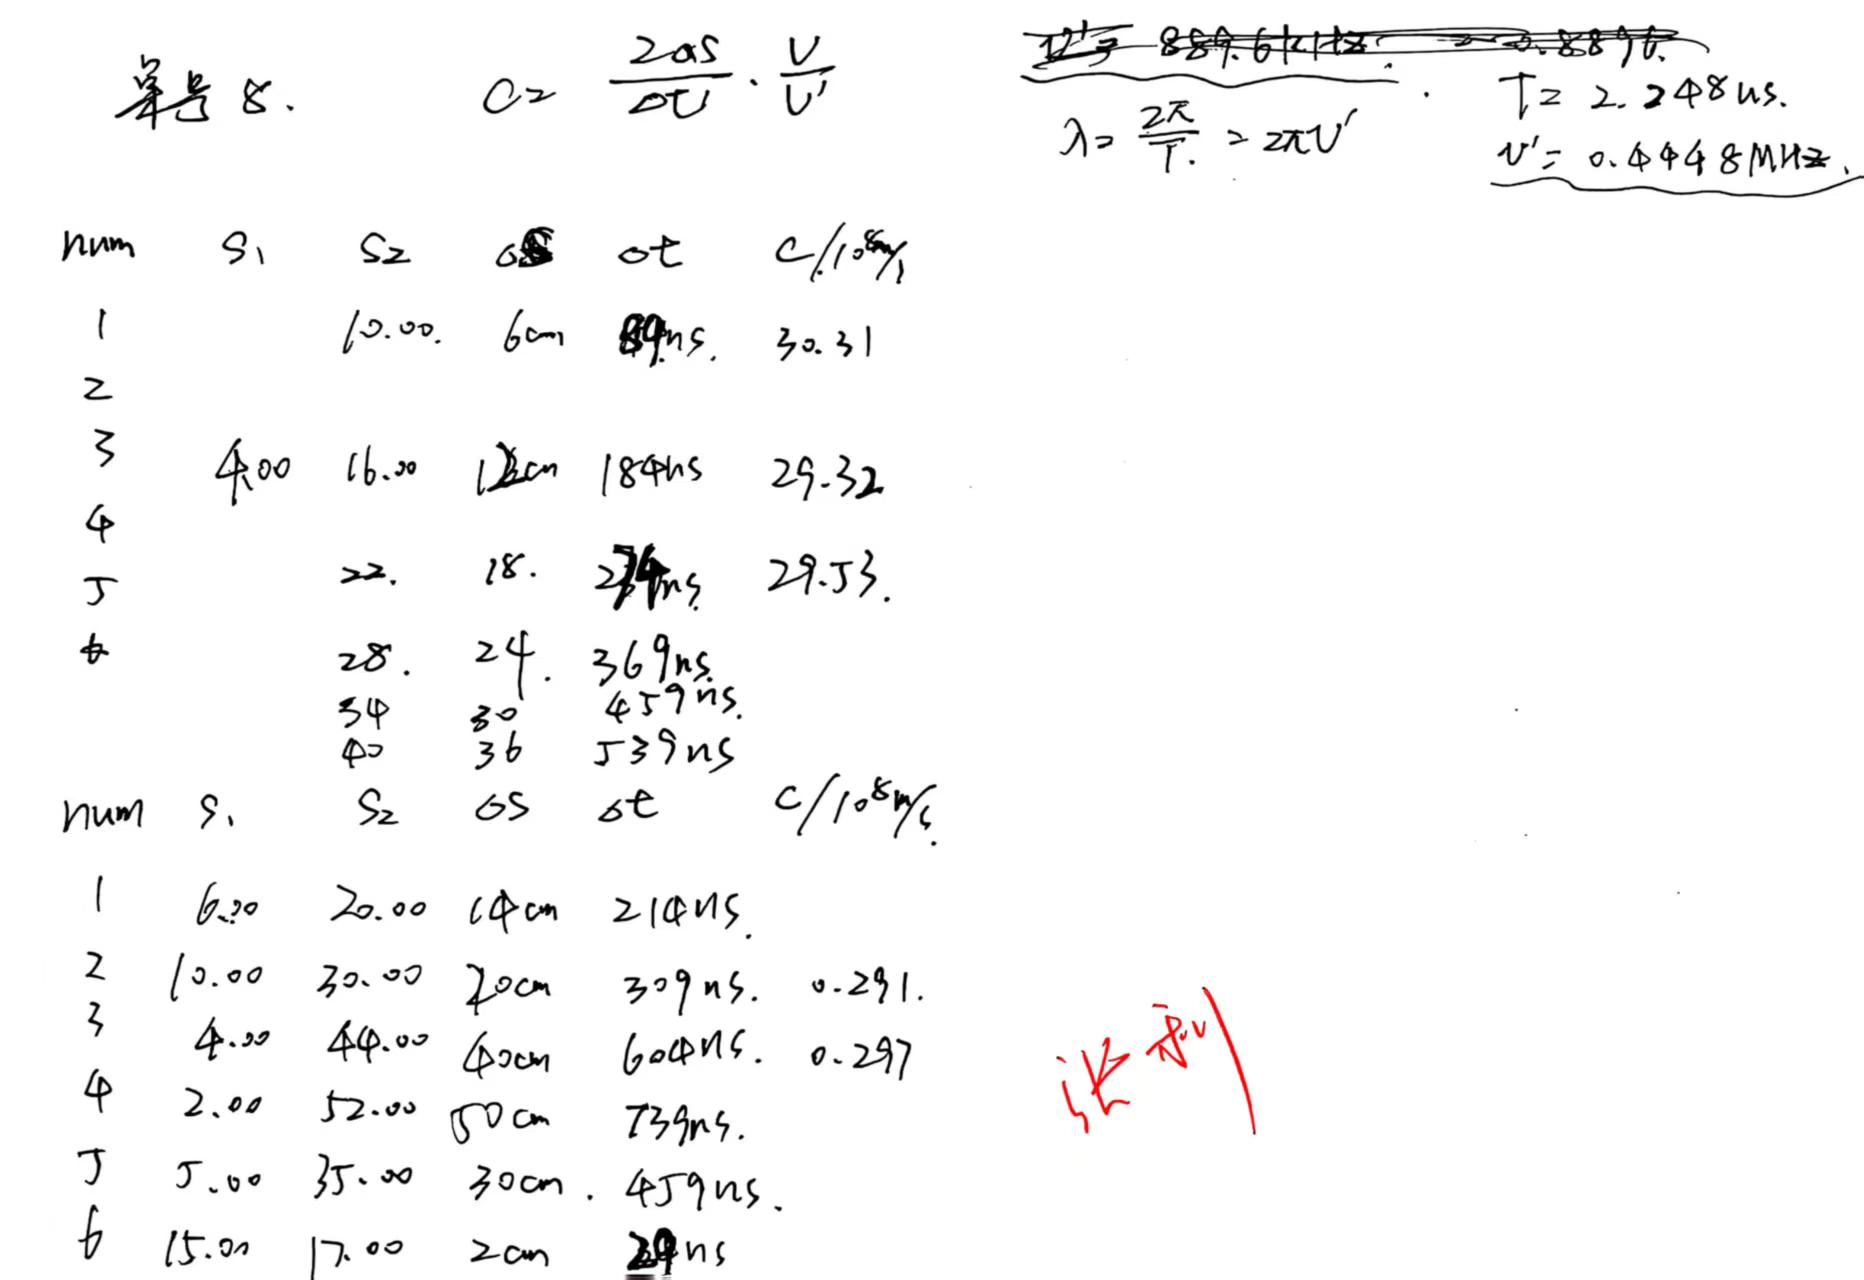 单号 8.
C= 2ΔS/ΔU · V/V'
λ= 2π/T. = 2πV'
T= 2.248us.
ν'= 0.4448MHz.
num S1 S2 ΔS Δt C/10⁸m/s
1 10.00. 6cm 89ns. 30.31
2
3 4.00 16.00 12cm 184ns 29.32
4
22. 18. 274ns. 29.53.
5
6
28. 24. 369ns.
34 30 459ns.
40 36 539ns
num S1 S2 ΔS Δt C/10⁸m/s.
1 6.00 20.00 14cm 214ns.
2 10.00 30.00 20cm 309ns. 0.291.
3 4.00 44.00 40cm 604ns. 0.297
4 2.00 52.00 50cm 739ns.
5 5.00 35.00 30cm. 459ns.
6 15.00 17.00 2cm ns